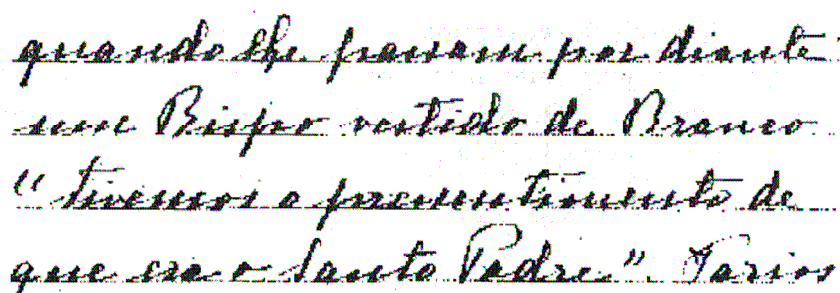 quando lhe passam por diante"
um Bispo vestido de Branco
"tivemos o pressentimento de
que era o Santo Padre". Varios